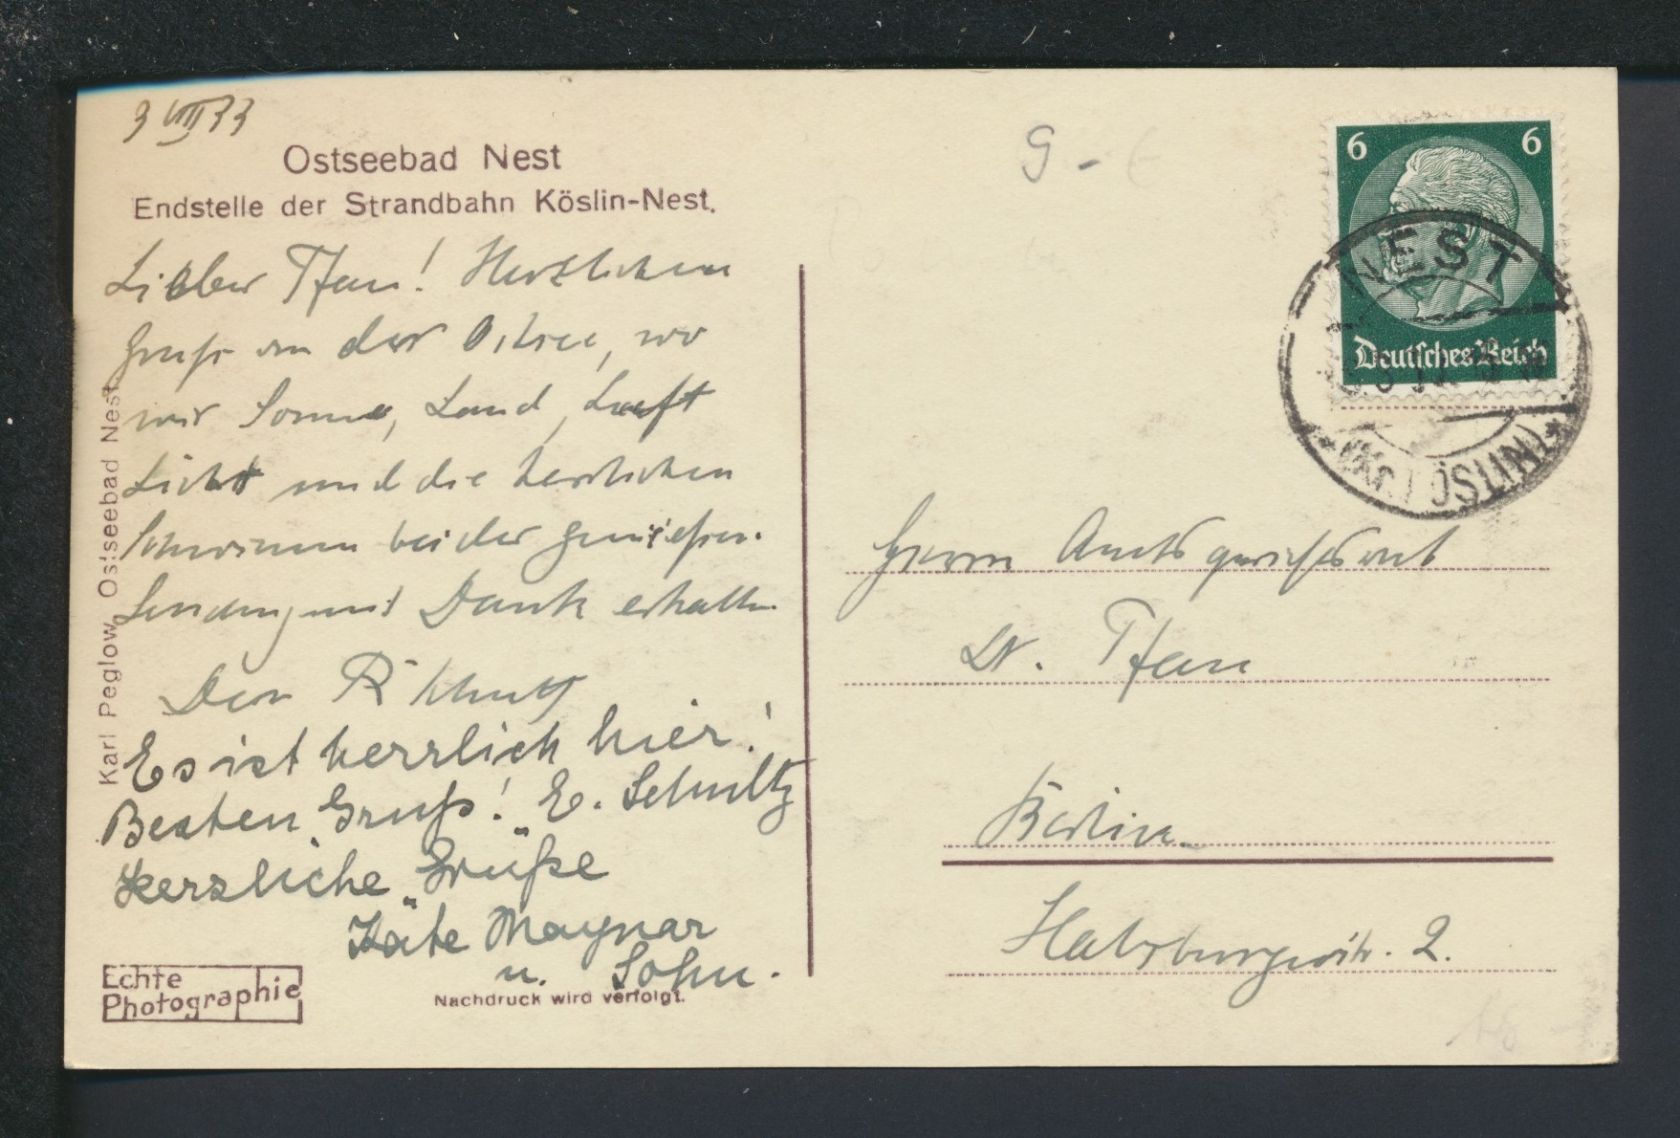 9 VIII 33
Ostseebad Nest
Endstelle der Strandbahn Köslin-Nest.
Lieber Pfau! Herzlichen
Gruß von der Ostsee, wo
wir Sonne, Sand, Luft
Licht und die herrlichen
bei der genießen.
Sendung mit Dank erhalten
Dein R Schultz
Es ist herrlich hier!
Besten Gruß! E. Schultz
Herzliche Grüße
Käte Maynar
u. Sohn.
Karl Peglow, Ostseebad Nest
Echte
Photographie
Nachdruck wird verfolgt.
6 6
Deutsches Reich
NEST
(KR. KÖSLIN)
Herrn Amtsgerichtsrat
Dr. Pfau
Berlin
Habsburgerstr. 2.